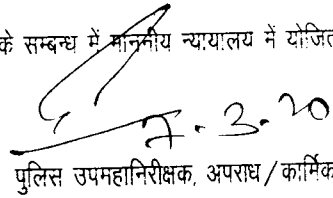 के सम्बन्ध में माननीय न्यायालय में योजित
7.3.20
पुलिस उपमहानिरीक्षक, अपराध/कार्मिक